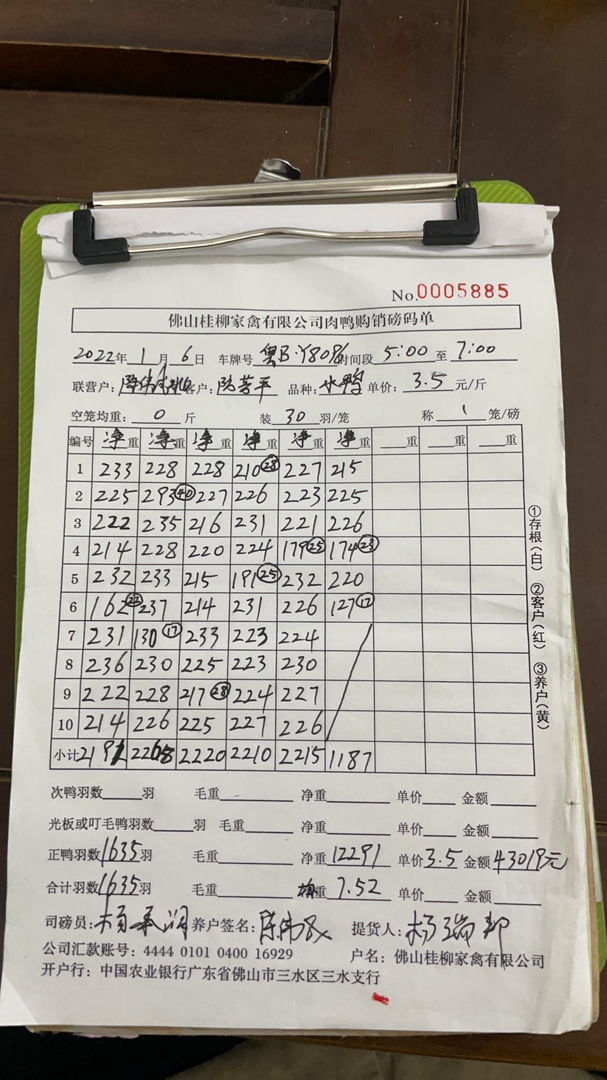 No.0005885
佛山桂柳家禽有限公司肉鸭购销磅码单
2022年1月6日 车牌号 粤B·Y8086 时间段 5:00 至 7:00
联营户: 客户: 品种: 水鸭 单价: 3.5 元/斤
空笼均重: 0 斤 装 30 羽/笼 称 1 笼/磅
编号 净重 净重 净重 净重 净重 净重 重 重 重
1 233 228 228 210(28) 227 215
2 225 293(40) 227 226 223 225
3 222 235 216 231 221 226
4 214 228 220 224 179(25) 174(23)
5 232 233 215 191(25) 232 220
6 162(22) 237 214 231 226 127(17)
7 231 130(17) 233 223 224
8 236 230 225 223 230
9 222 228 217(28) 224 227
10 214 226 225 227 226
小计 2191 2268 2220 2210 2215 1187
①存根(白) ②客户(红) ③养户(黄)
次鸭羽数 羽 毛重 净重 单价 金额
光板或叮毛鸭羽数 羽 毛重 净重 单价 金额
正鸭羽数 1635 羽 毛重 净重 12291 单价 3.5 金额 43019元
合计羽数 1635 羽 毛重 均重 7.52 单价 金额
司磅员: 养户签名: 提货人:
公司汇款账号: 4444 0101 0400 16929 户名: 佛山桂柳家禽有限公司
开户行: 中国农业银行广东省佛山市三水区三水支行